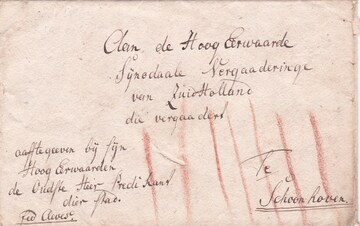 Aan de Hoog Eerwaarde
Sijnodaale Vergaaderinge
van Zuid Holland
die vergaadert
Te
Schoonhoven.
aaftegeeven bij Sijn
Hoog Eerwaarden
de Oudste Heer Predikant
dier Stad.